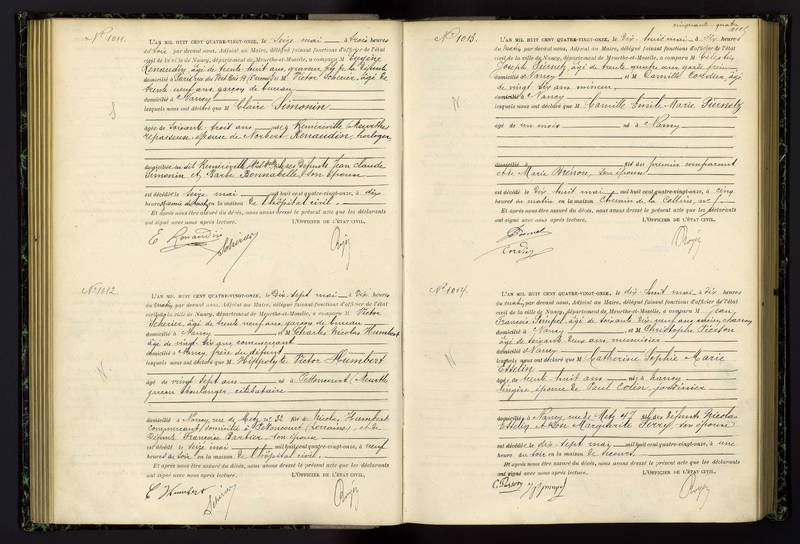 No 1011.
L'AN MIL HUIT CENT QUATRE-VINGT-ONZE, le Seize mai à trois heures
du soir par devant nous, Adjoint au Maire, délégué faisant fonctions d'officier de l'état
civil de la ville de Nancy, département de Meurthe-et-Moselle, a comparu M Eugène
Renaudin, âgé de trente huit ans, graveur, fils de la défunte
domicilié à Paris, rue du et M Victor Scherier, âgé de
trente neuf ans, garçon de bureau
domicilié à Nancy
lesquels nous ont déclaré que M Claire Simonin
âgée de soixante trois ans née à Reméréville (Meurthe)
repasseuse, épouse de Norbert Renaudin, horloger,
domiciliée au dit Reméréville, des défunts Jean Claude
Simonin et Barbe Bonnabelle, son épouse
est décédée le Seize mai mil huit cent quatre-vingt-onze, à dix
heures en la maison de l'hôpital civil.
Et après nous être assuré du décès, nous avons dressé le présent acte que les déclarants
ont signé avec nous après lecture. L'OFFICIER DE L'ÉTAT CIVIL,
E Renaudin
Scherier
No 1012
L'AN MIL HUIT CENT QUATRE-VINGT-ONZE, le Dix-sept mai à Dix heures
du matin, par devant nous, Adjoint au Maire, délégué faisant fonctions d'officier de l'état
civil de la ville de Nancy, département de Meurthe-et-Moselle, a comparu M Victor
Scherier, âgé de trente neuf ans, garçon de bureau
domicilié à Nancy et M Charles Nicolas Humbert
âgé de vingt six ans, commerçant
domicilié à Nancy, frère du défunt
lesquels nous ont déclaré que M Hippolyte Victor Humbert
âgé de vingt sept ans né à Pettoncourt (Meurthe)
garçon boulanger, célibataire
domicilié à Nancy, rue de Metz, no 32 fils de Nicolas Humbert
commerçant, domicilié à Pettoncourt (Lorraine), et de
défunte Françoise Barbier, son épouse
est décédé le seize mai mil huit cent quatre-vingt-onze, à neuf
heures du soir en la maison de l'hôpital civil.
Et après nous être assuré du décès, nous avons dressé le présent acte que les déclarants
ont signé avec nous après lecture. L'OFFICIER DE L'ÉTAT CIVIL,
C Humbert
Scherier
cinquante quatre
No 1013.
L'AN MIL HUIT CENT QUATRE-VINGT-ONZE, le Dix-huit mai à Dix heures
du matin, par devant nous, Adjoint au Maire, délégué faisant fonctions d'officier de l'état
civil de la ville de Nancy, département de Meurthe-et-Moselle, a comparu M Célestin
Joseph âgé de trente quatre ans,
domicilié à Nancy et M Camille Cordier, âgé
de vingt six ans, mineur
domicilié à Nancy
lesquels nous ont déclaré que M Camille Emile Marie
âgé de un mois né à Nancy
domicilié à fils du premier comparant
et de Marie son épouse
est décédé le Dix huit mai mil huit cent quatre-vingt-onze, à cinq
heures du matin en la maison Chemin de la Colline,
Et après nous être assuré du décès, nous avons dressé le présent acte que les déclarants
ont signé avec nous après lecture. L'OFFICIER DE L'ÉTAT CIVIL,
Cordier
No 1014.
L'AN MIL HUIT CENT QUATRE-VINGT-ONZE, le dix-huit mai à Dix heures
du matin, par devant nous, Adjoint au Maire, délégué faisant fonctions d'officier de l'état
civil de la ville de Nancy, département de Meurthe-et-Moselle, a comparu M Jean
François âgé de soixante dix neuf ans, ancien charron
domicilié à Nancy et M Christophe
âgé de soixante deux ans, menuisier
domicilié à Nancy
lesquels nous ont déclaré que M Catherine Sophie Marie
âgée de trente huit ans née à Nancy
lingère, épouse de Paul Colin, jardinier
domiciliée à Nancy, rue de Metz 47 fille des défunts Nicolas
et de Marguerite Ferry, son épouse
est décédée le dix-sept mai mil huit cent quatre-vingt-onze, à une
heure du soir en la maison de secours.
Et après nous être assuré du décès, nous avons dressé le présent acte que les déclarants
ont signé avec nous après lecture. L'OFFICIER DE L'ÉTAT CIVIL,